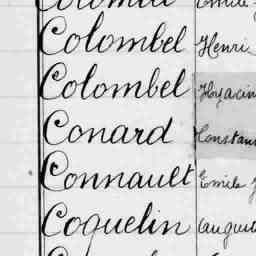 Colombel Henri
Colombel Hyacin
Conard Constan
Connault Emile J
Coquelin August